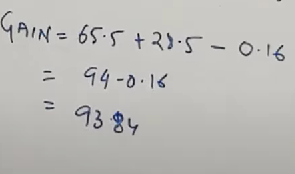 GAIN = 65.5 + 28.5 - 0.16
= 94 - 0.16
= 93.84